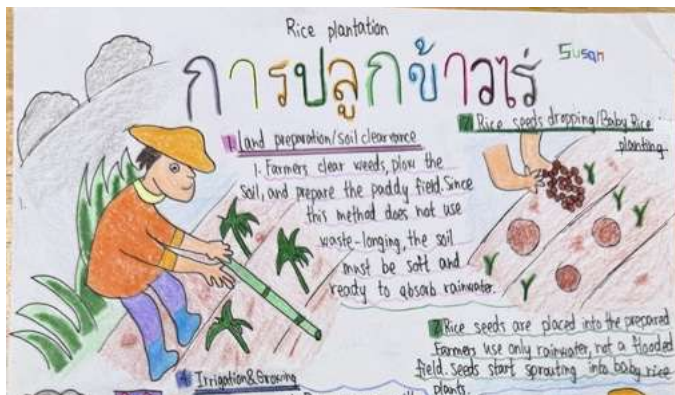 Rice plantation
การปลูกข้าวไร่
Susan
1. Land preparation/Soil clearance
1. Farmers clear weeds, plow the
soil, and prepare the paddy field. Since
this method does not use
waste-longing, the soil
must be soft and
ready to absorb rainwater.
2. Rice seeds dropping/Baby Rice
planting
2. Rice seeds are placed into the prepared
Farmers use only rainwater, not a flooded
field. Seeds start sprouting into baby rice
plants.
4. Irrigation&Growing